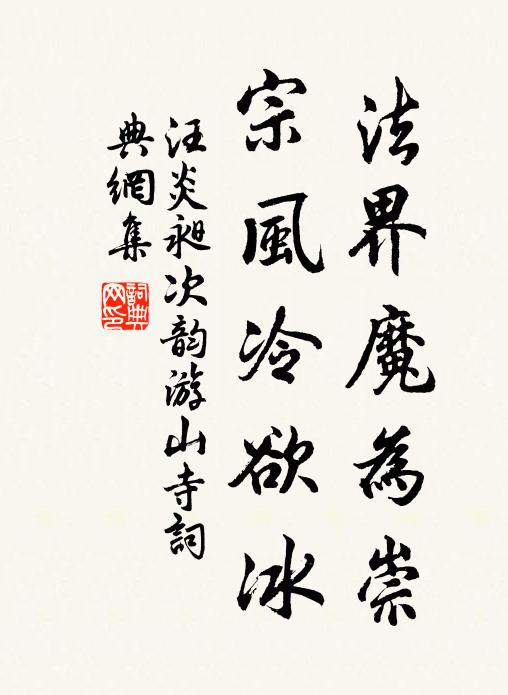 法界魔為祟
宗風冷欲冰
汪炎昶次韵游山寺詞
典網集
詞典网印